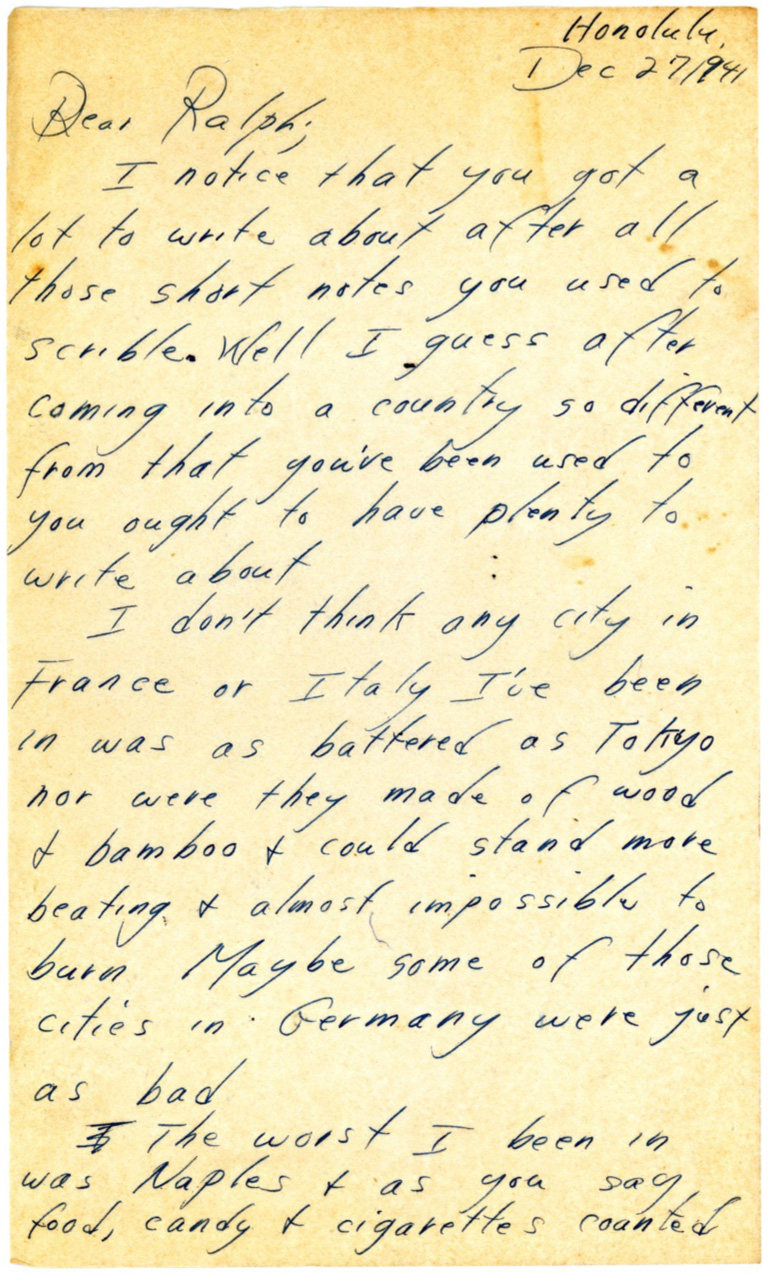 Honolulu,
Dec 27/1941
Dear Ralph;
I notice that you got a
lot to write about after all
those short notes you used to
scrible. Well I guess after
coming into a country so different
from that you've been used to
you ought to have plenty to
write about
I don't think any city in
France or Italy I've been
in was as battered as Tokyo
nor were they made of wood
& bamboo & could stand more
beating & almost impossible to
burn Maybe some of those
cities in Germany were just
as bad
The worst I been in
was Naples & as you say,
food, candy & cigarettes counted